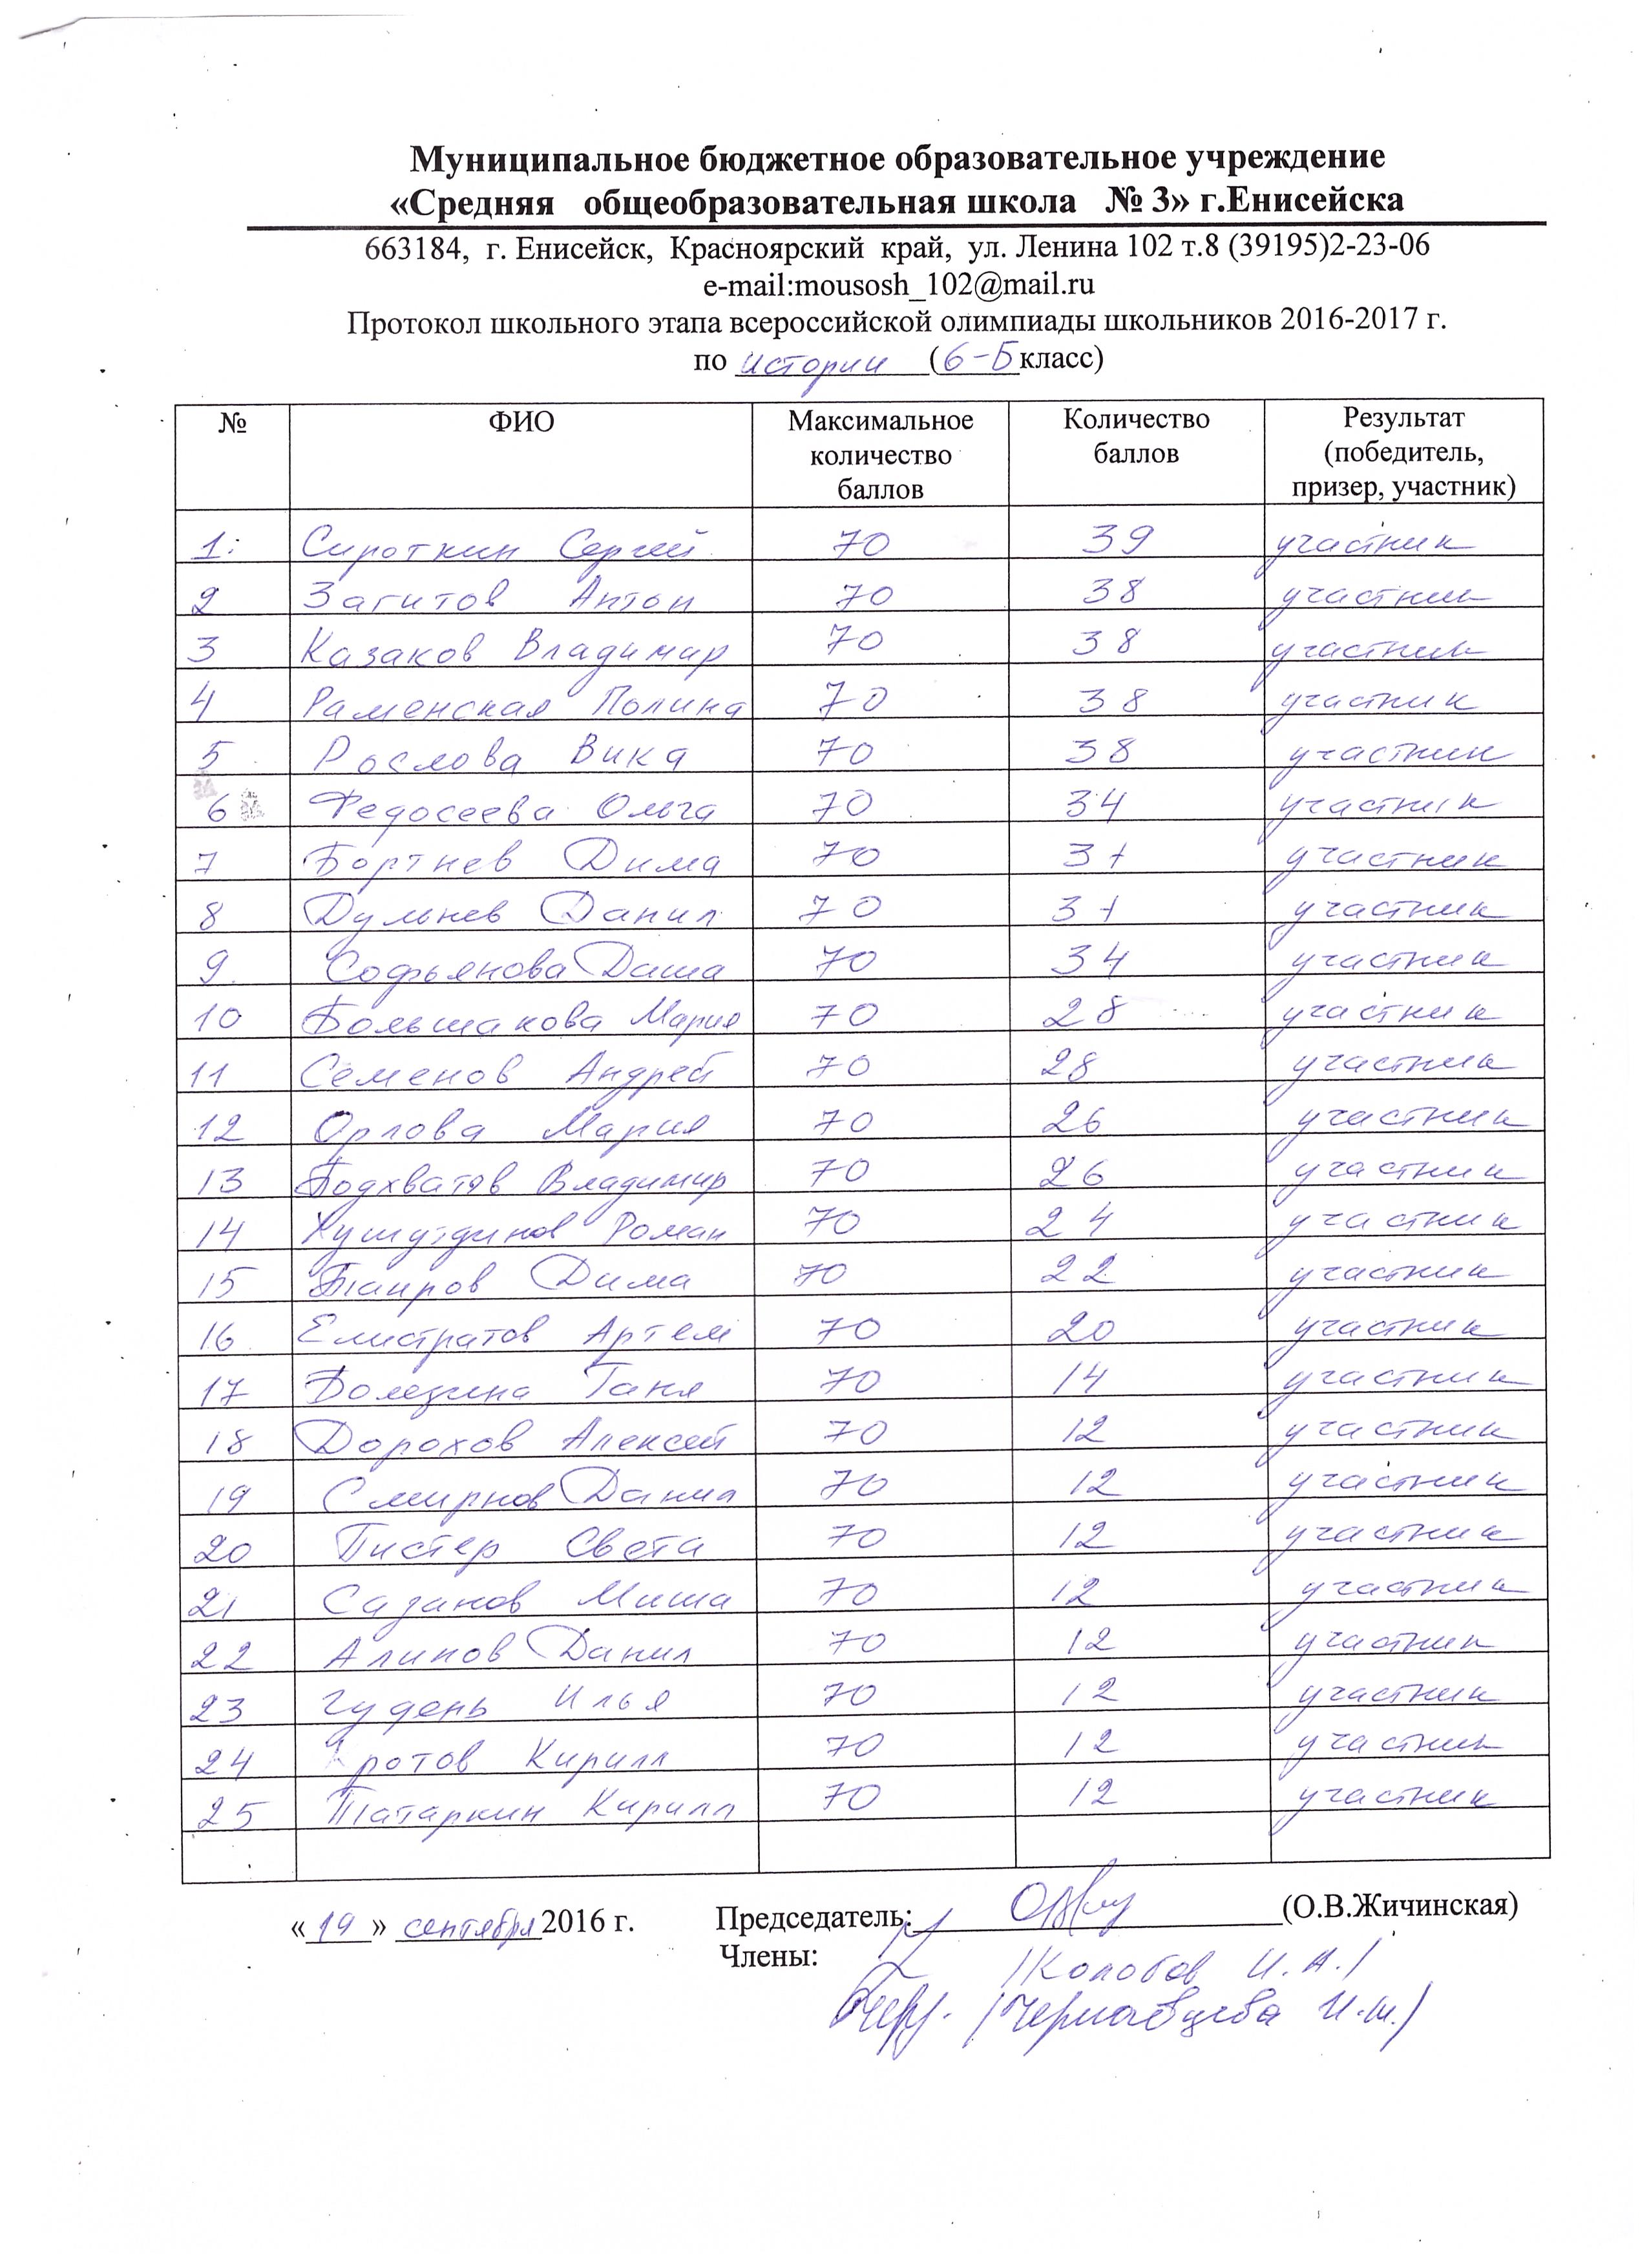 Муниципальное бюджетное образовательное учреждение
«Средняя общеобразовательная школа № 3» г.Енисейска
663184, г. Енисейск, Красноярский край, ул. Ленина 102 т.8 (39195)2-23-06
e-mail:mousosh_102@mail.ru
Протокол школьного этапа всероссийской олимпиады школьников 2016-2017 г.
по истории (6-Б класс)
№ ФИО Максимальное количество баллов Количество баллов Результат (победитель, призер, участник)
1. Сироткин Сергей 70 39 участник
2 Загитов Антон 70 38 участник
3 Казаков Владимир 70 38 участник
4 Раменская Полина 70 38 участник
5 Рослова Вика 70 38 участник
6 Федосеева Ольга 70 34 участник
7 Бортнев Дима 70 31 участник
8 Дульнев Данил 70 31 участник
9 Софьянова Даша 70 34 участник
10 Большакова Мария 70 28 участник
11 Семенов Андрей 70 28 участник
12 Орлова Мария 70 26 участник
13 Подхватов Владимир 70 26 участник
14 Роман 70 24 участник
15 Таиров Дима 70 22 участник
16 Елистратов Артем 70 20 участник
17 Таня 70 14 участник
18 Дорохов Алексей 70 12 участник
19 Смирнов Данил 70 12 участник
20 Пистер Света 70 12 участник
21 Сазанов Миша 70 12 участник
22 Алипов Данил 70 12 участник
23 Гудень Илья 70 12 участник
24 Кротов Кирилл 70 12 участник
25 Татаркин Кирилл 70 12 участник
«19» сентября 2016 г. Председатель: (О.В.Жичинская)
Члены:
/Колобов И.А./